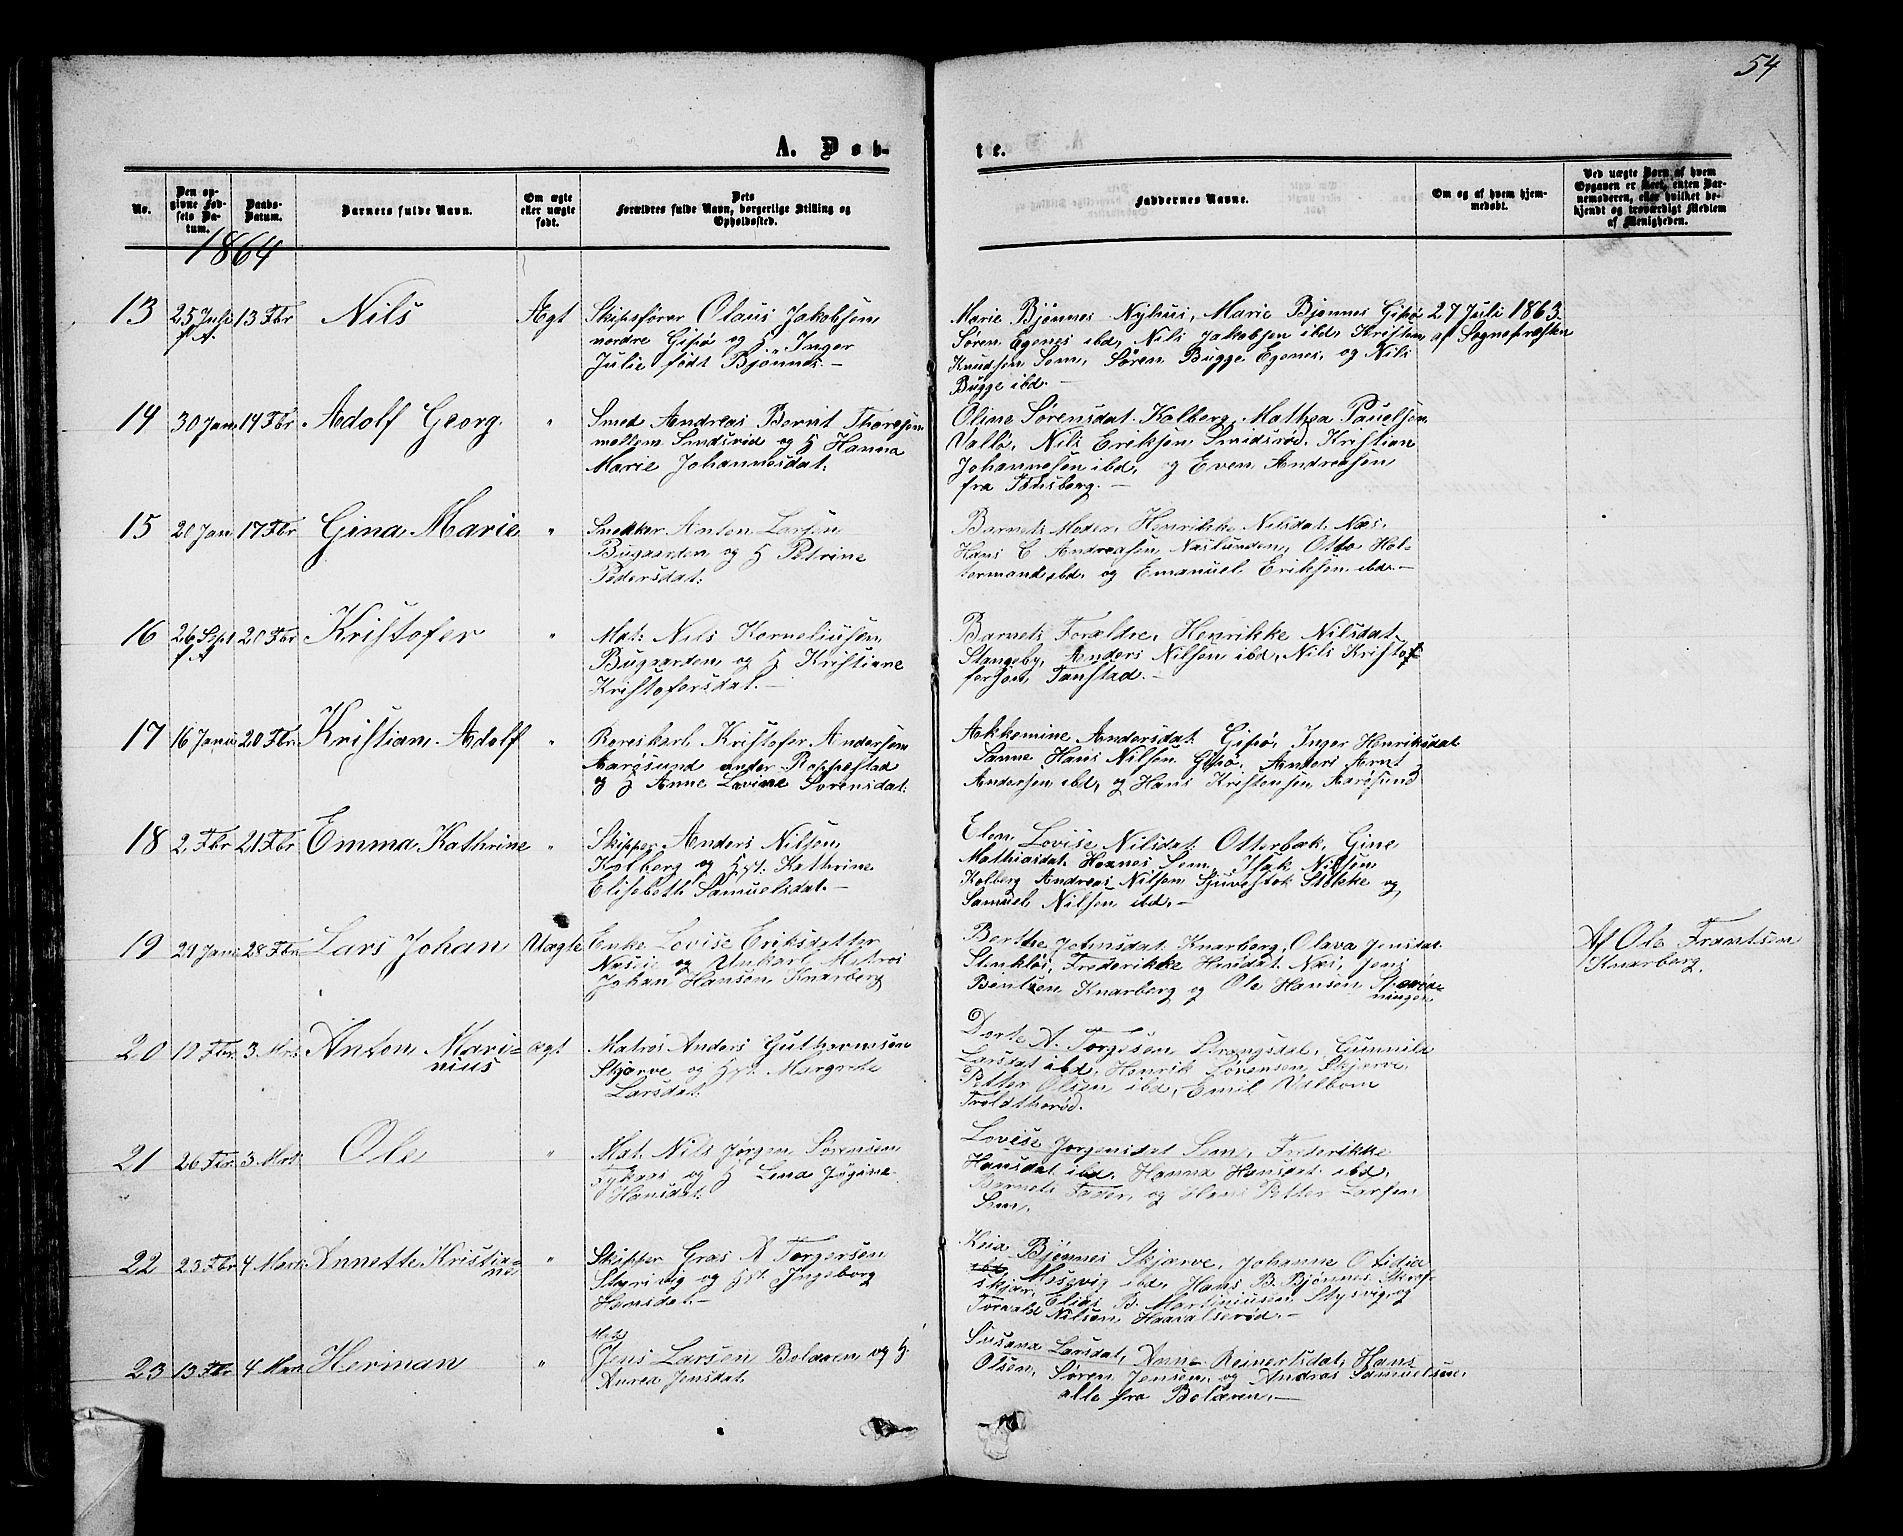 54
A. Døb-
te.
No.
Den op-
givne Fød-
sels Da-
tum.
Daabs-
Datum.
Barnets fulde Navn.
Om ægte
eller uægte
født.
Dets
Forældres fulde Navn, borgerlige Stilling og
Opholdssted.
Faddernes Navne.
Om og af hvem hjem-
medøbt.
Ved uægte Børn af hvem
Opgaven er skeet, enten Bar-
nemoderen, eller hvilket be-
kjendt og troværdigt Medlem
af Menigheden.
1864
13 25 Juli 13 Fbr Nils Ægt Skipsfører Olaus Jakobsen
f. A.
nordre Gipø og H Inger
Julie født Bjønnes.-
Marie Bjønnes Nyhus, Marie Bjønnes Gipø
Søren Egenes ibd, Nils Jakobsen ibd, Kristen
Knudsen Sem, Søren Bugge Egenes, og Nils
Bugge ibd.-
27 Juli 1863
af Sognepræsten
14 30 Jan 14 Fbr. Adolf Georg. " Smed Andreas Bernt Thoresen
mellem Smidsrød og H Hanna
Marie Johannesdat.
Oline Sørensdat. Kolberg, Mathea Paulsen
Valløe, Nils Eriksen Smidsrød, Kristian
Johannesen ibd, og Even Andreasen
fra Tønsberg.-
15 20 Jan 17 Fbr. Gina Marie " Snedker Anton Larsen
Bugaarden og H Petrine
Pedersdat.
Barnets Moder, Henrikke Nilsdat. Næs,
Hans E Andreasen Næslunden, Otto Hol-
termand ibd. og Emanuel Eriksen ibd.-
16 26 Sept 20 Fbr Kristofer " Mat. Nils Korneliusen
f A
Bugaarden og H Kristiane
Kristofersdat.-
Barnets Forældre, Henrikke Nilsdat.
Stangeby, Anders Nilsen ibd, Nils Kristof-
fersen Fanstad.-
17 16 Janu 20 Fbr. Kristian Adolf " Roreskarl Kristofer Andersen
Aarøsund under Roppestad
og H Anne Lovine Sørensdat.
Akkemine Andersdat. Gipø, Inger Henriksdat
Sanne, Hans Nilsen Gipø, Anders Arnt
Andersen ibd, og Hans Kristensen Aarøsund
18 2 Fbr 21 Fbr Emma Kathrine " Skipper Anders Nilsen
Kolberg og Hst. Kathrine
Elisebeth Samuelsdat.-
Elen Lovise Nilsdat. Otterbæk, Gine
Mathiasdat. Hornes Sem, Isak Nilsen
Kolberg Andreas Nilsen Stokke og
Samuel Nilsen ibd.-
19 29 Janu 28 Fbr. Lars Johan Uægte Enke Lovise Eriksdatter
Næsie og Unkarl Matros
Johan Hansen Knarberg
Berthe Johnsdat. Knarberg, Olava Jensdat.
Stenkløs, Frederikke Hansdat. Næs, Jens
Bentsen Knarberg og Ole Hansen
Af Ole Frantsen
Knarberg.
20 17 Fbr. 3. Mrs. Anton Mari-
nius
ægt Matros Anders Guthormsen
Skjærve og Hst. Margrete
Larsdat.
Dorte A. Torgesen Strengsdal, Gunnild
Larsdat ibd, Henrik Sørensen Skjærve,
Petter Olsen ibd, Emil Valbom
Troldthorød.
21 26 Fbr. 3. Mrs. Ole " Mat. Nils Jørgen Sørensen
og H Lena Jøgine
Hansdat.
Lovise Jørgensdat Sem, Frederikke
Hansdat ibd. Hanna Hansdat. ibd.
Barnets Fader, og Hans Petter Larsen
Sem.
22 23 Fbr 4 Mars. Annette Kristia-
ne
" Skipper Gras A Torgersen
Styrsvig og Hst. Ingeborg
Hansdat.-
Kria Bjønnes Skjærve, Johanne Otidia
Misevig ibd, Hans B. Bjønnes
skjær, Elias B. Martiniusen Styrsvig, og
Torvald Nilsen Haavalserød.-
23 13 Fbr 4 Mars Herman " Mat.
Jens Larsen Bolæren og H
Anrea Jensdat.
Susana Larsdat, Anne Reinertsdat, Hans
Olsen, Søren Jensen, og Andras Samuelsen,
alle fra Bolæren.-